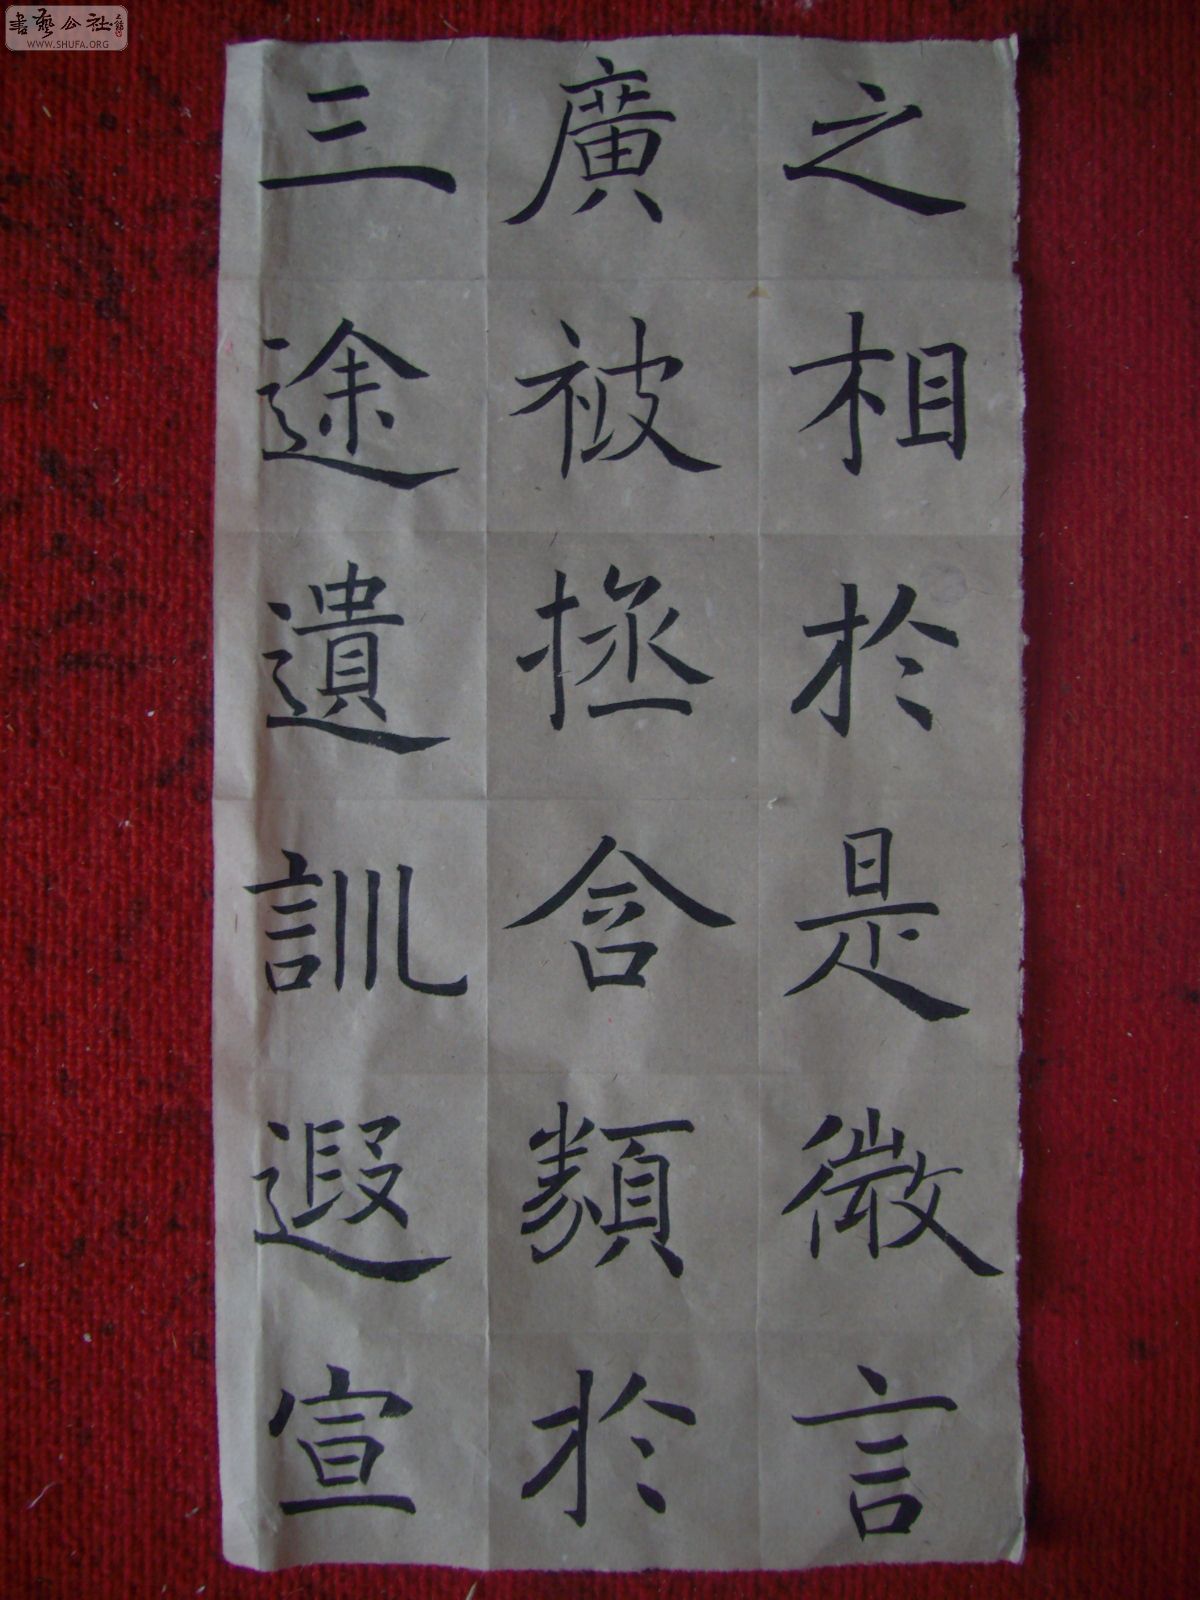 之相於是微言
廣被拯含類於
三途遺訓遐宣
書藝公社
WWW.SHUFA.ORG